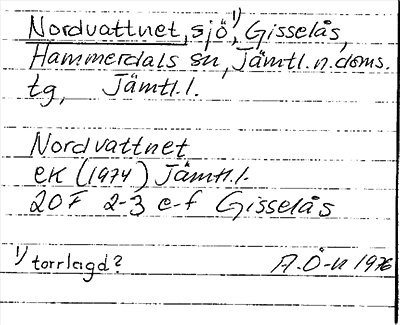 Nordvattnet, sjö,¹⁾ Gisselås,
Hammerdals sn, Jämtl. n. doms.
tg, Jämtl. l.
Nordvattnet
ek (1974) Jämtl. l.
20F 2-3 e-f Gisselås
¹⁾ torrlagd? A. Ö-n 1976